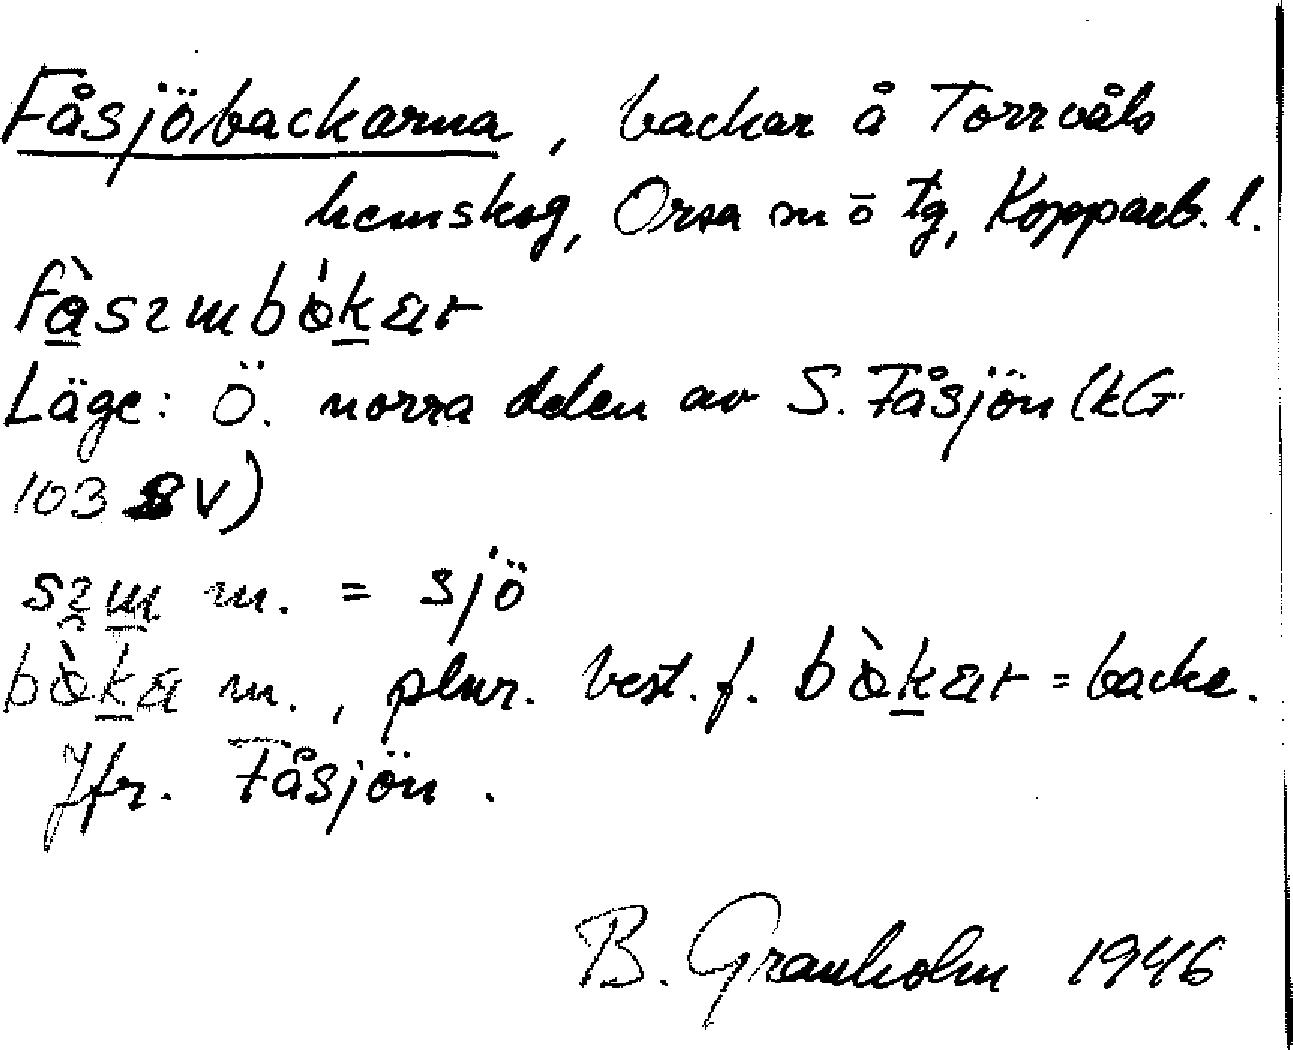 Fåsjöbackarna, backar å Torrvåls
hemskog, Orsa sn ö tg, Kopparb. l.
Läge: Ö. norra delen av S. Fåsjön (kG
103 SV)
m. = sjö
m., plur. best. f. = backe.
Jfr. Fåsjön.
B. Granholm 1946